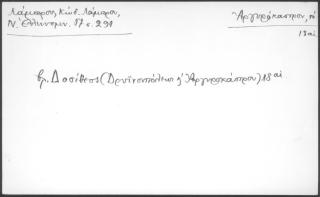 Λάμπρου, Κώδ. Λάμπρου,
Ν. Ἑλληνομν. 17 σ. 291
Ἀργυρόκαστρον, τό
18 αἰ
βλ. Δοσίθεος (Δρυϊνουπόλεως ἢ Ἀργυροκάστρου) 18 αἰ